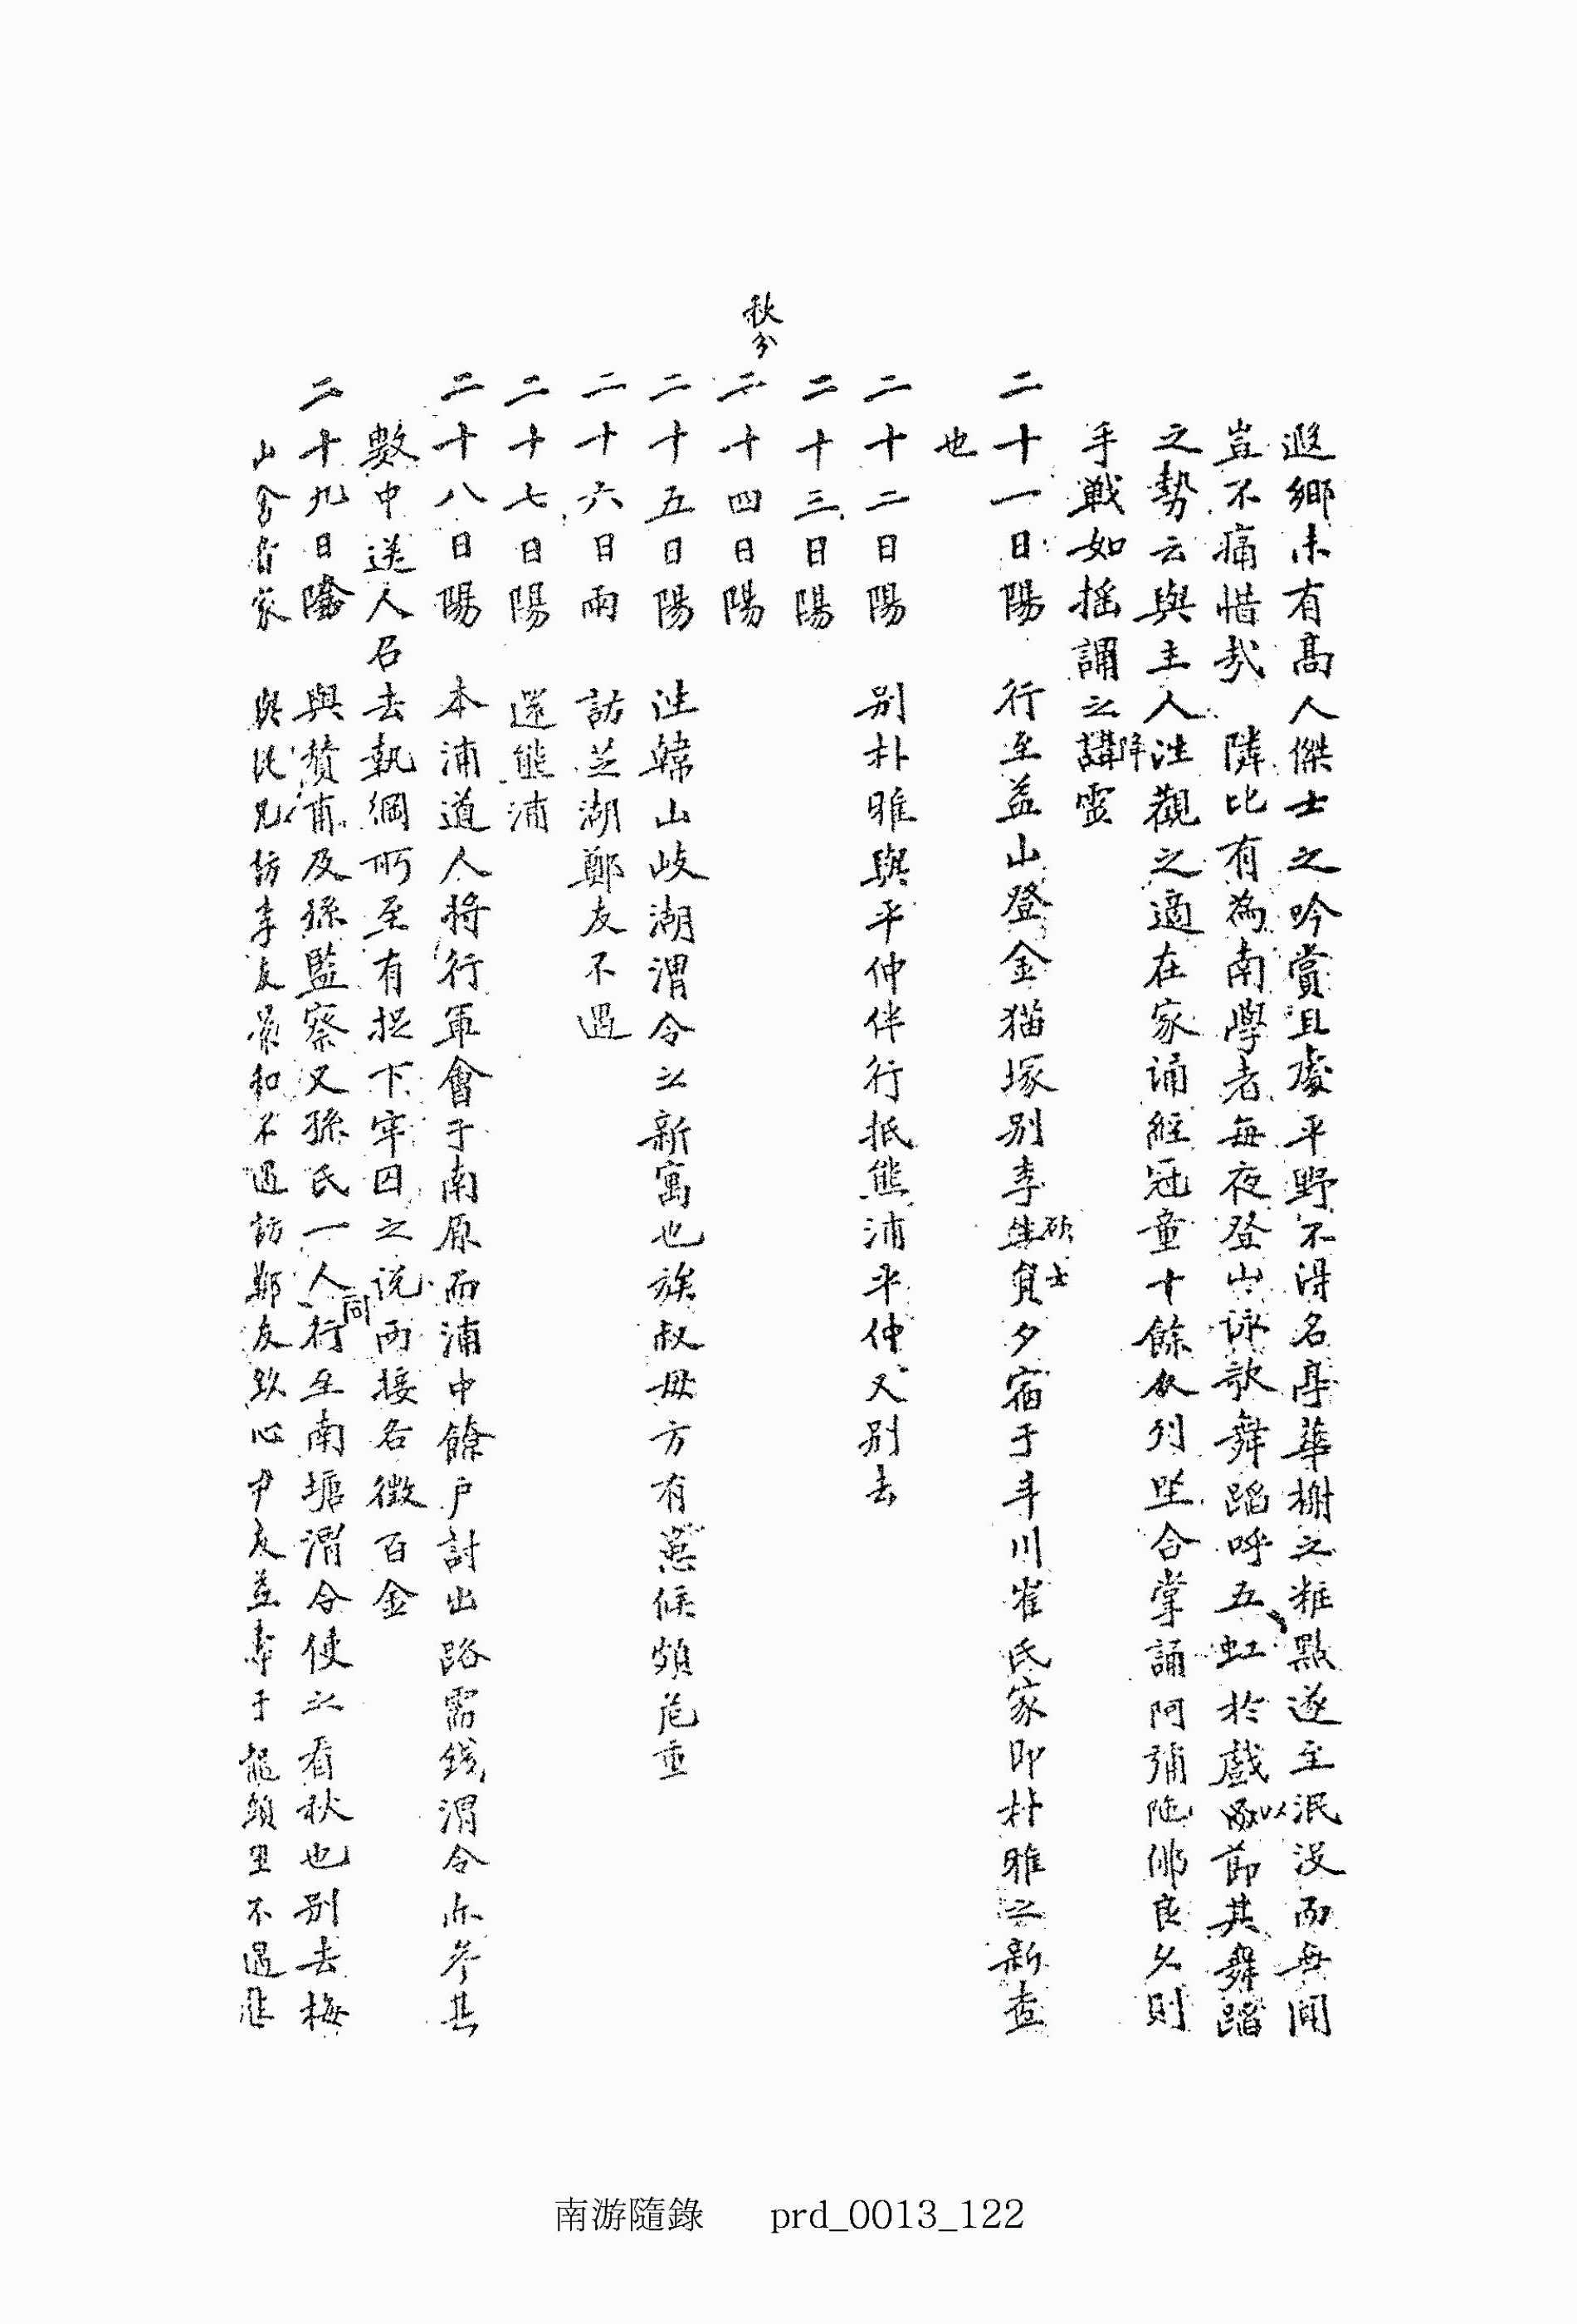 遐鄉未有高人傑士之吟賞且處平野不得名亭華榭之粧點遂至泯沒而無聞
豈不痛惜哉 隣比有為南學者每夜登山詠歌舞蹈呼五虹於戲以節其舞蹈
之勢云與主人往觀之適在家誦經冠童十餘人列坐合掌誦阿彌陀佛良久則
手戰如搖謂之講降靈
二十一日陽 行至益山登金猫塚別李碩士夕宿于斗川崔氏家即朴雅之新查
也
二十二日陽 別朴雅與平仲伴行抵熊浦平仲又別去
二十三日陽
秋分
二十四日陽
二十五日陽 往韓山岐湖渭令之新寓也族叔母方有患候頗危重
二十六日雨 訪芝湖鄭友不遇
二十七日陽 還熊浦
二十八日陽 本浦道人將行軍會于南原而浦中饒戶討出路需錢渭令亦參其
數中送人召去執綱所至有捉下牢囚之說而接名徵百金
二十九日陰 與贊甫及孫監察又孫氏一人同行至南塘渭令使之看秋也別去梅
山會省家 與從兄訪李友景和不遇訪鄭友 心尹友益壽于龍頭里不遇